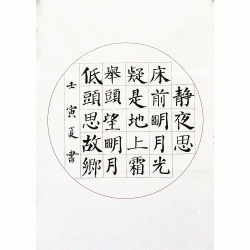 静夜思
床前明月光
疑是地上霜
舉頭望明月
低頭思故鄉
壬寅夏書